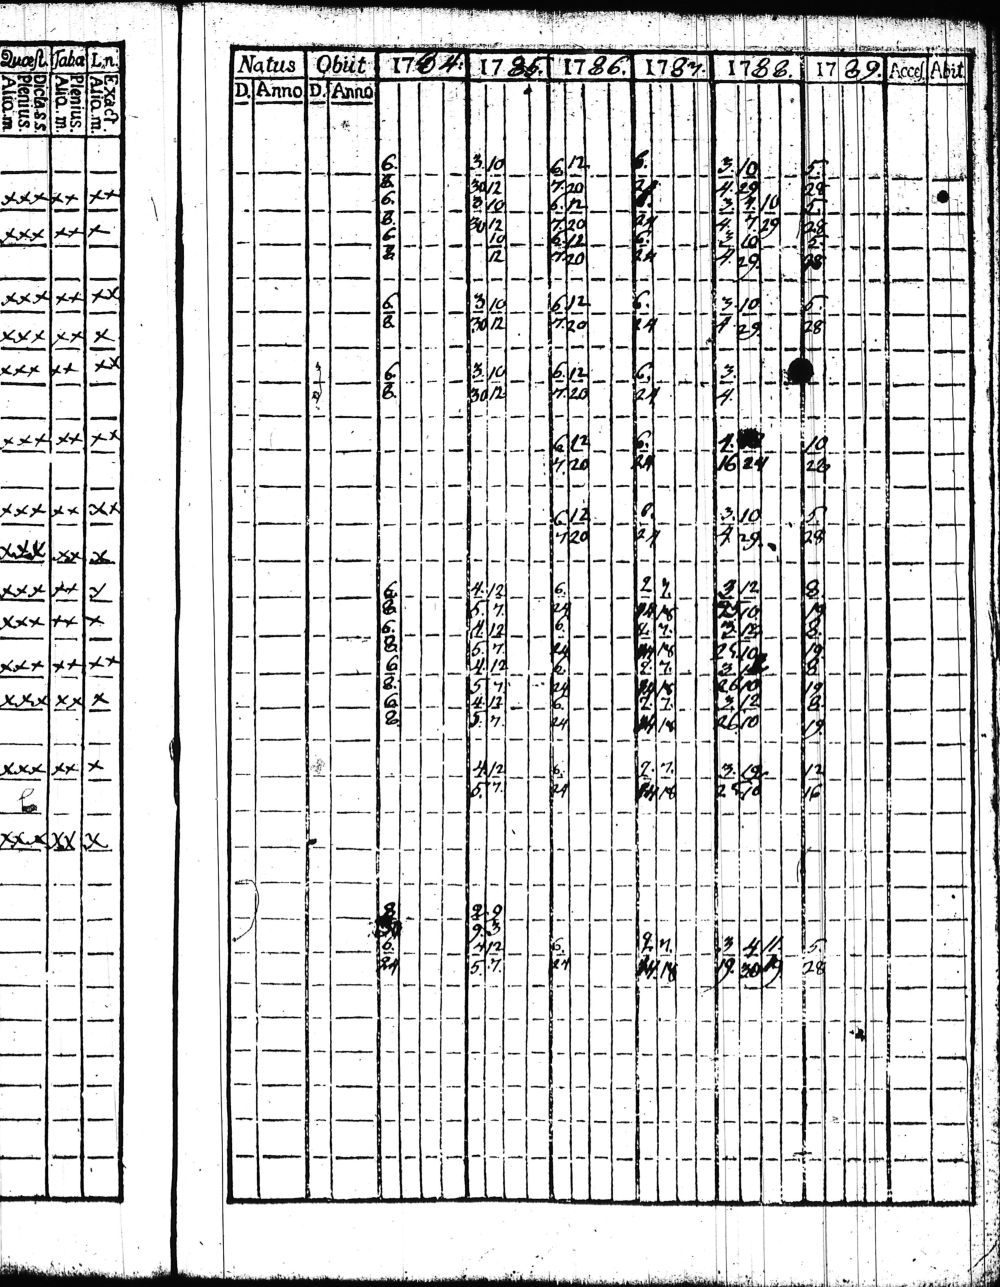 Quæst. Taba L.n. Natus Obiit 1784. 1785. 1786. 1787. 1788. 1789. Acces. Abit
Dicta s s Plenius. Alio.m. Plenius. Alio.m. Exact. Alio.m. D. Anno D. Anno
6. 3. 10 6. 12 6. 3. 10 5.
8. 30 12 7. 20 24 4. 29 28
xxx xx xx 6. 3 10 6. 12 6. 3. 4. 10 5
8. 30 12 7. 20 24 4. 7. 29 28
xxx xx x 6. 10 6. 12 6. 3. 10 5.
8. 12 7. 20 24 4. 29. 28
xxx xx xx 6. 3 10 6. 12 6. 3. 10 5.
xxx xx x 8. 30 12 7. 20 24 4 29. 28
xxx xx xx 6. 3. 10 6. 12 6. 3.
8. 30 12 7. 20 24 4.
xxx xx xx 6. 12 6. 4. 10
7. 20 24 16 24 28
xxx xx xx 6. 12 6. 3. 10 5
xxx xx x 7 20 24 4 29. 28
xxx xx x 6. 4. 12 6. 2 7. 3 12 8.
8. 5. 7. 24 14 18 25 10 19
xxx xx x 6. 4. 12 6. 2. 7. 3. 12 8.
8. 5. 7. 24 14 18 25. 10. 19
xxx xx xx 6. 4. 12 6. 2. 7. 3 12 8
8. 5 7 24 14 18 26 10 19
xxx xx x 6. 4. 12 6. 2. 7. 3. 12 8.
8. 5. 7. 24 14 18 26. 10 19.
xxx xx x 4. 12 6. 2. 7. 3. 12. 12
5. 7. 24 14 18 25 10 16
xxx xx x
8 2. 9
9. 3
6. 4 12 6. 2 7. 3 4 11. 5.
24 5 7. 24 14. 18 19. 30 19 28